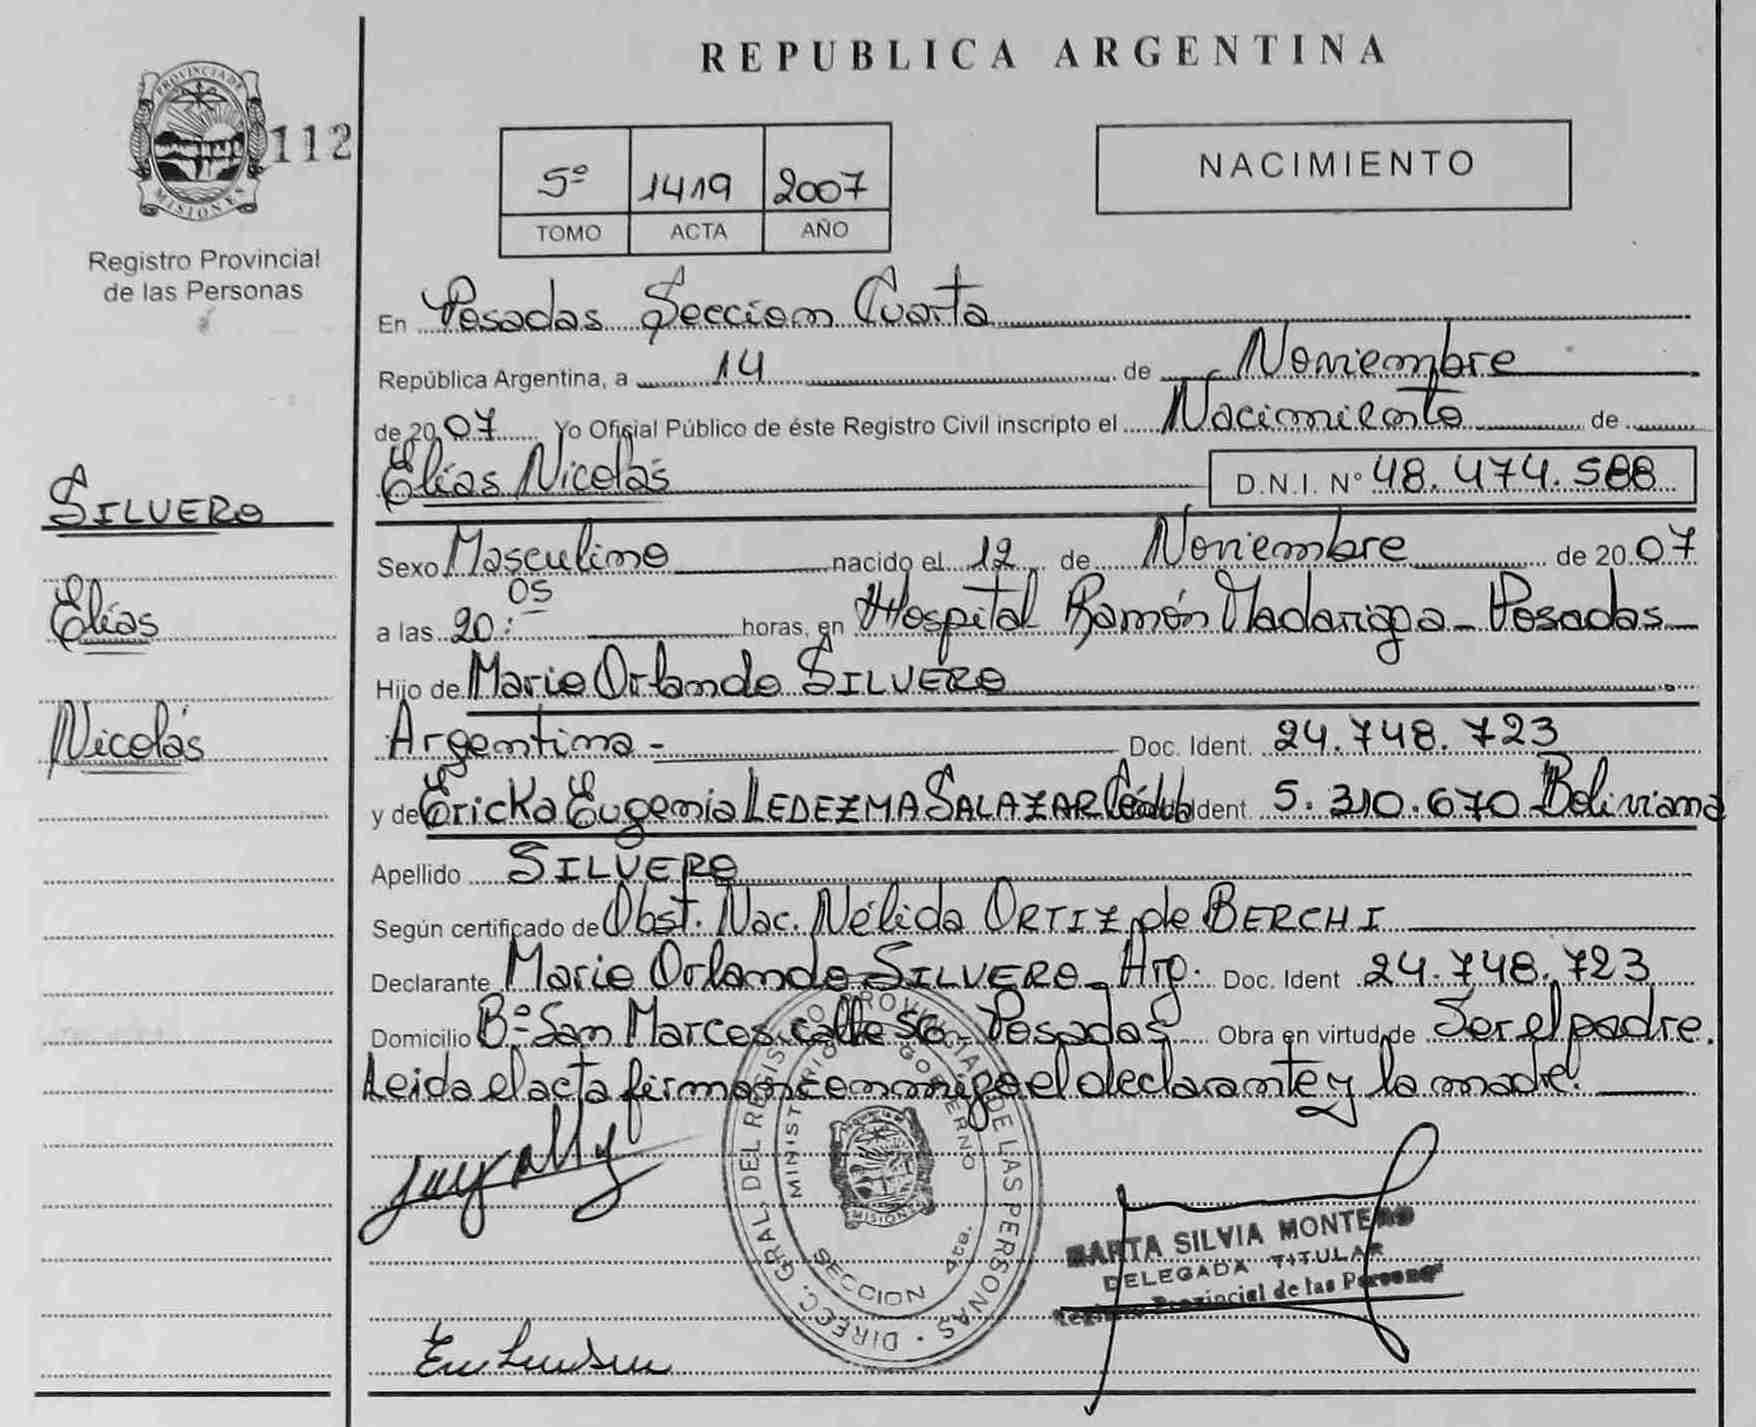 REPUBLICA ARGENTINA
PROVINCIA DE
MISIONES
112
Registro Provincial
de las Personas
5º 1419 2007
TOMO ACTA AÑO
NACIMIENTO
En Posadas Seccion Cuarta
República Argentina, a 14 de Noviembre
de 2007 Yo Oficial Público de éste Registro Civil inscripto el Nacimiento de
Elías Nicolás D.N.I. Nº 48.474.588
SILVERO
Elías
Nicolás
Sexo Masculino nacido el 12 de Noviembre de 2007
a las 20:05 horas, en Hospital Ramón Madariaga - Posadas
Hijo de Mario Orlando SILVERO
Argentina - Doc. Ident. 24.748.723
y de Ericka Eugenia LEDEZMA SALAZAR Ident 5.310.670 Boliviana
Apellido SILVERO
Según certificado de Obst. Nac. Nélida ORTIZ de BERCHI
Declarante Mario Orlando SILVERO - Arg. Doc. Ident 24.748.723
Domicilio Bº San Marcos calle 56 - Posadas Obra en virtud de Ser el padre.
Leida el acta firman conmigo el declarante y la madre.
DIREC. GRAL. DEL REGISTRO PROVINCIAL DE LAS PERSONAS
MINISTERIO GOBIERNO
MISIONES
SECCION 4ta.
MARTA SILVIA MONTERO
DELEGADA TITULAR
Registro Provincial de las Personas